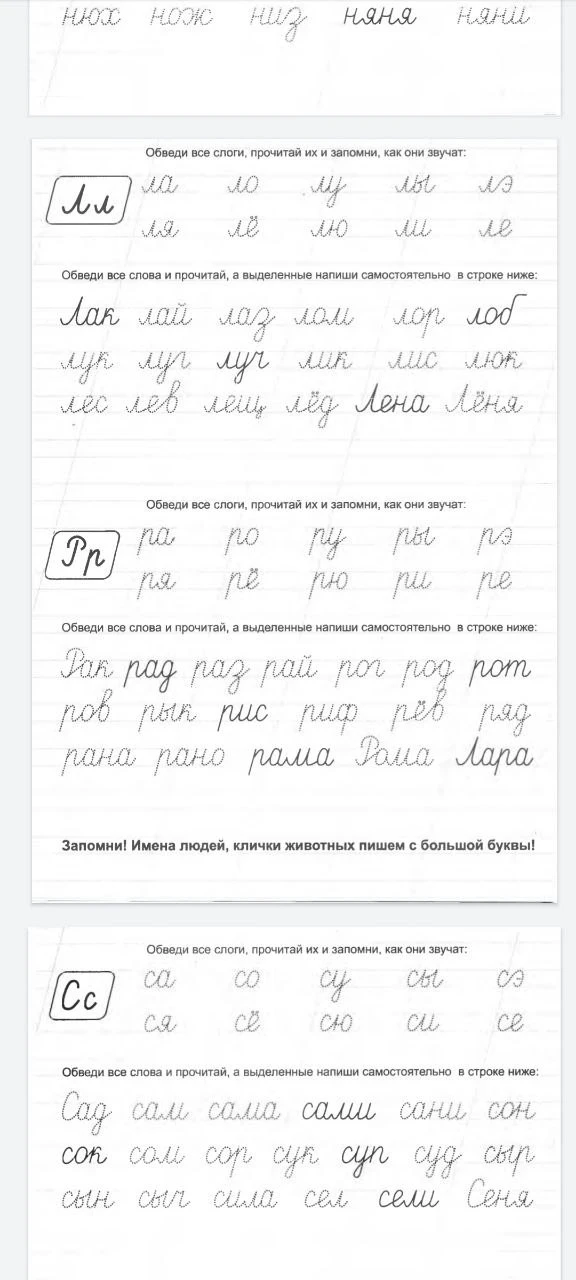 нюх нож низ няня няни
Обведи все слоги, прочитай их и запомни, как они звучат:
Лл
ла ло лу лы лэ
ля лё лю ли ле
Обведи все слова и прочитай, а выделенные напиши самостоятельно в строке ниже:
Лак лай лаз лом лор лоб
лук луг луч лик лис люк
лес лев лещ лёд Лена Лёня
Обведи все слоги, прочитай их и запомни, как они звучат:
Рр
ра ро ру ры рэ
ря рё рю ри ре
Обведи все слова и прочитай, а выделенные напиши самостоятельно в строке ниже:
Рак рад раз рай рог род рот
ров рык рис риф рёв ряд
рана рано рама Рома Лара
Запомни! Имена людей, клички животных пишем с большой буквы!
Обведи все слоги, прочитай их и запомни, как они звучат:
Сс
са со су сы сэ
ся сё сю си се
Обведи все слова и прочитай, а выделенные напиши самостоятельно в строке ниже:
Сад сам сама сами сани сон
сок сом сор сук суп суд сыр
сын сыч сила сел сели Сеня